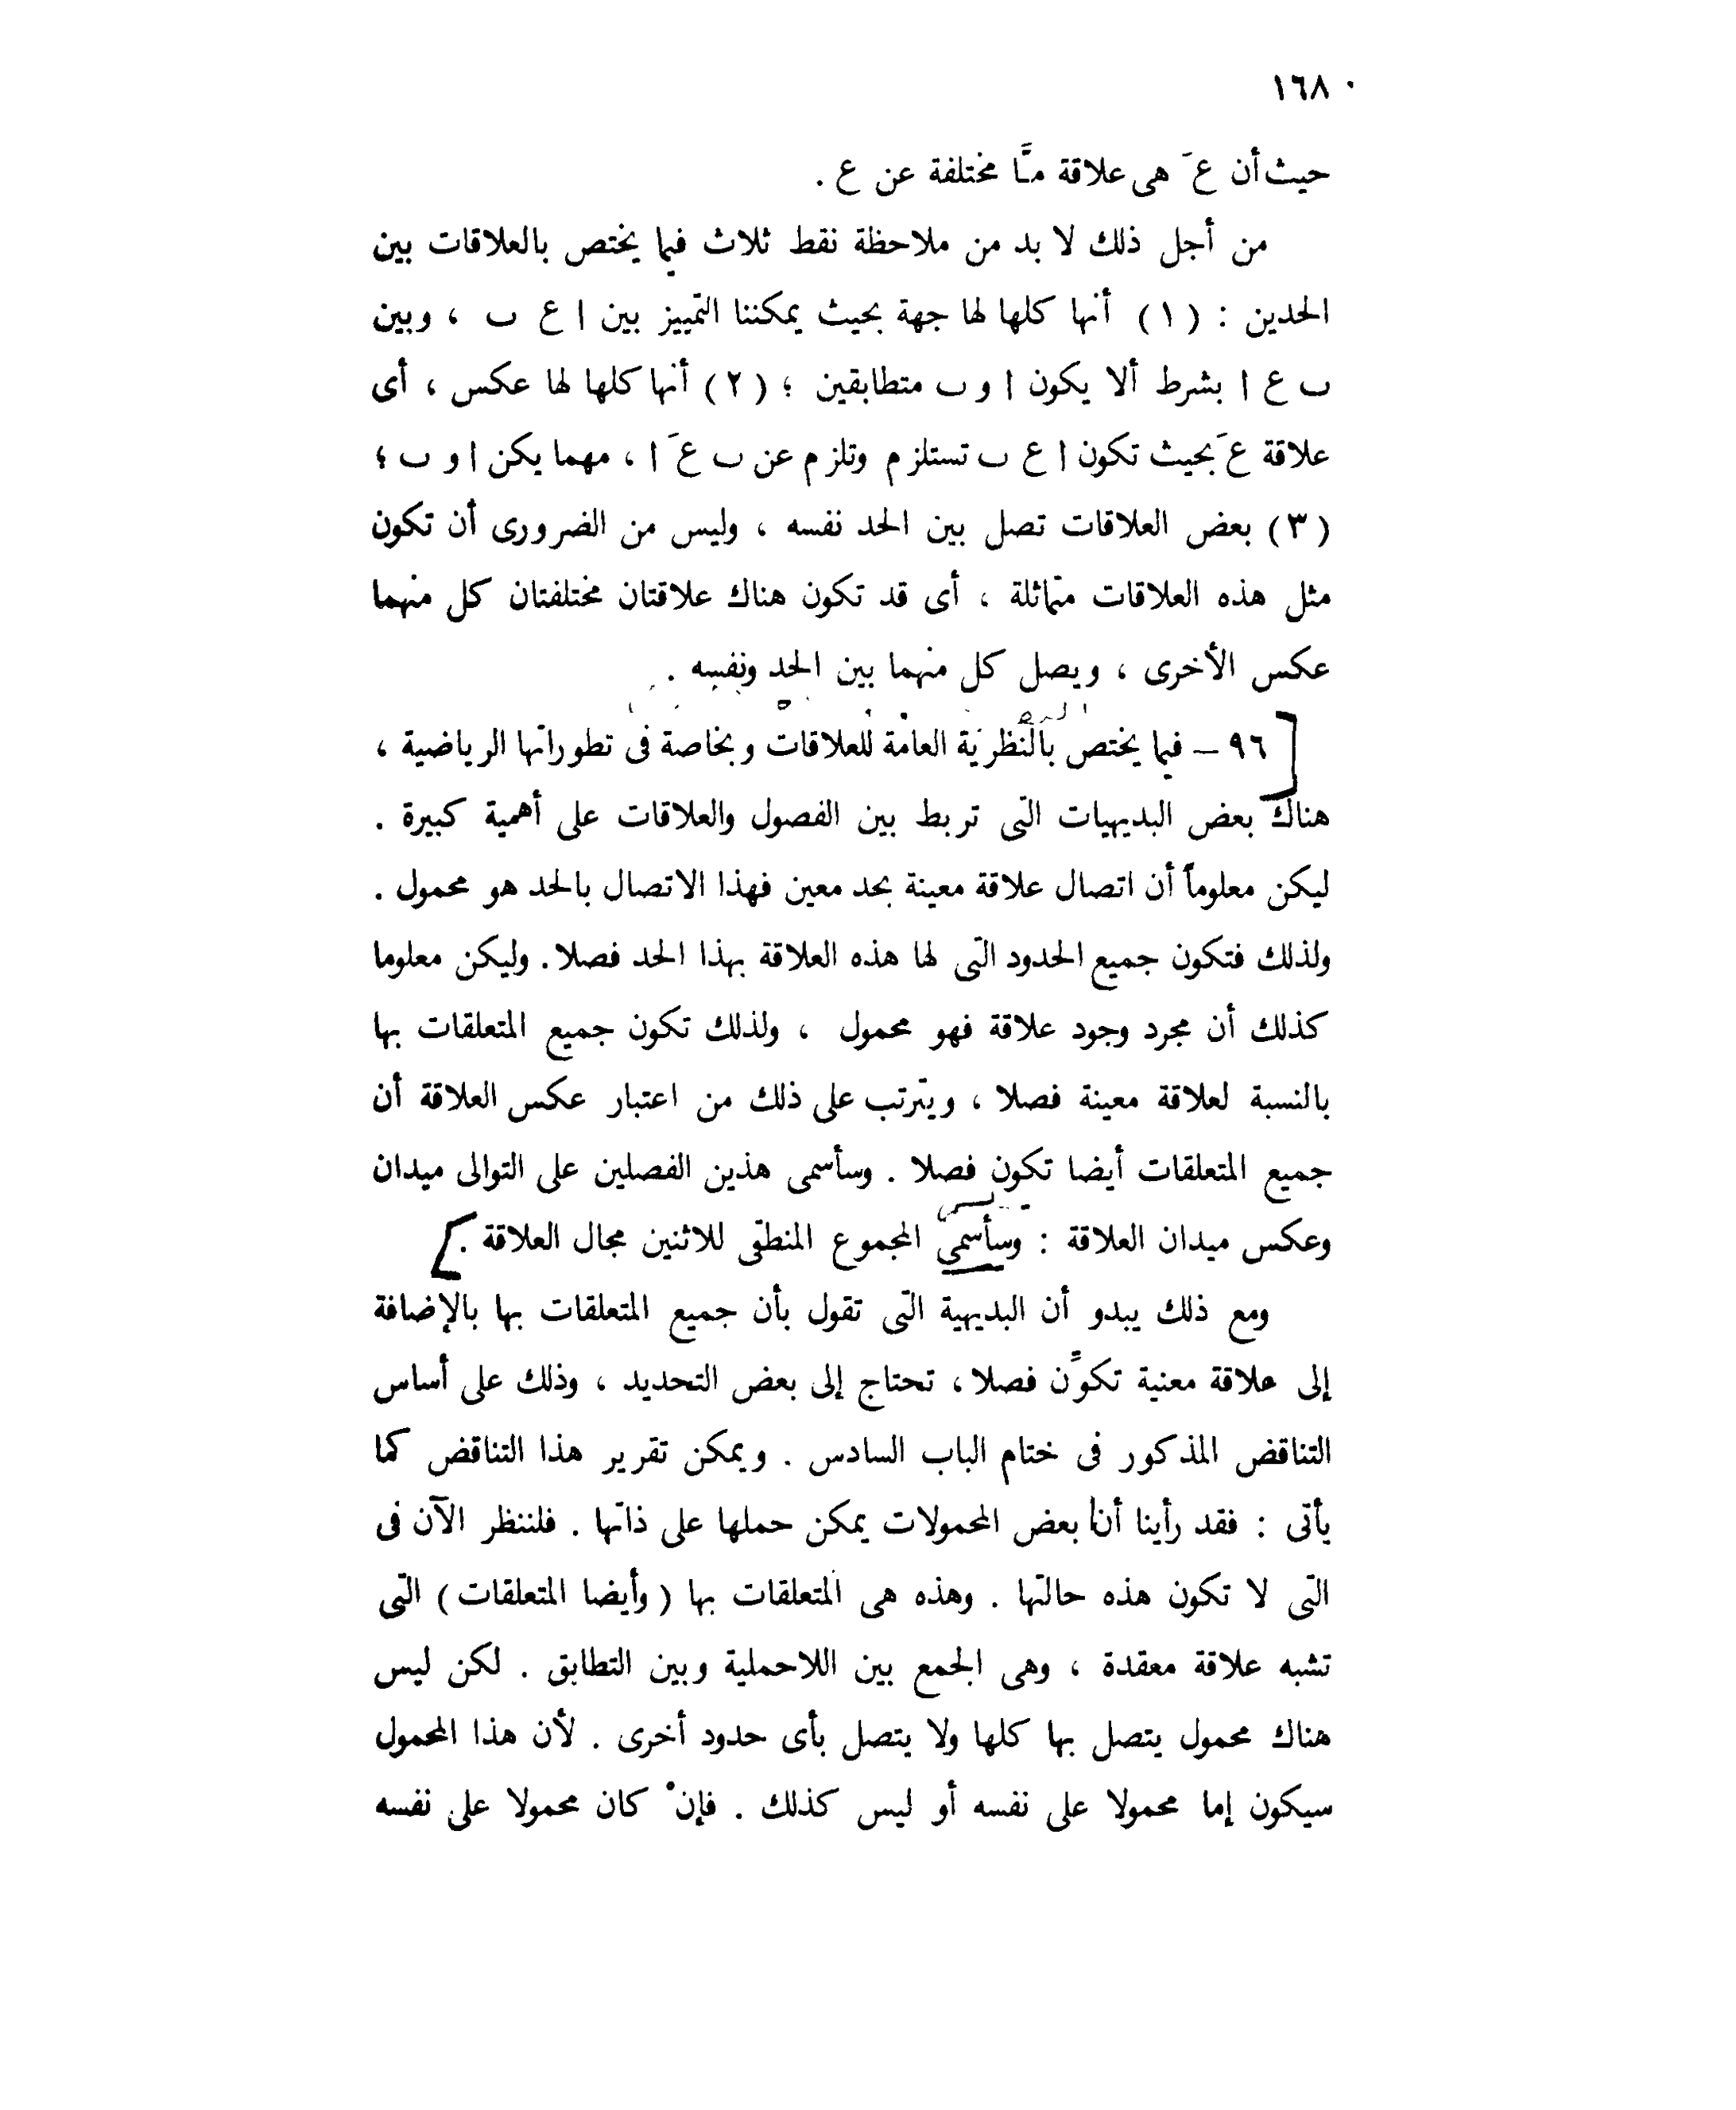 ١٦٨
حيث أن عَ هى علاقة مـَّا مختلفة عن ع .
من أجل ذلك لا بد من ملاحظة نقط ثلاث فيما يختص بالعلاقات بين
الحدين : (١) أنها كلها لها جهة بحيث يمكننا التمييز بين ا ع ب ، وبين
ب ع ا بشرط ألا يكون ا و ب متطابقين ؛ (٢) أنها كلها لها عكس ، أى
علاقة عَ بحيث تكون ا ع ب تستلزم وتلزم عن ب عَ ا ، مهما يكن ا و ب ؛
(٣) بعض العلاقات تصل بين الحد نفسه ، وليس من الضرورى أن تكون
مثل هذه العلاقات متماثلة ، أى قد تكون هناك علاقتان مختلفتان كل منهما
عكس الأخرى ، ويصل كل منهما بين الحد ونفسه .
٩٦ – فيما يختص بالنظرية العامة للعلاقات وبخاصة فى تطوراتها الرياضية ،
هناك بعض البديهيات التى تربط بين الفصول والعلاقات على أهمية كبيرة .
ليكن معلوماً أن اتصال علاقة معينة بحد معين فهذا الاتصال بالحد هو محمول .
ولذلك فتكون جميع الحدود التى لها هذه العلاقة بهذا الحد فصلا . وليكن معلوما
كذلك أن مجرد وجود علاقة فهو محمول ، ولذلك تكون جميع المتعلقات بها
بالنسبة لعلاقة معينة فصلا ، ويترتب على ذلك من اعتبار عكس العلاقة أن
جميع المتعلقات أيضا تكون فصلا . وسأسمى هذين الفصلين على التوالى ميدان
وعكس ميدان العلاقة : وسأسمى المجموع المنطقى للاثنين مجال العلاقة .
ومع ذلك يبدو أن البديهية التى تقول بأن جميع المتعلقات بها بالإضافة
إلى علاقة معنية تكوِّن فصلا ، تحتاج إلى بعض التحديد ، وذلك على أساس
التناقض المذكور فى ختام الباب السادس . ويمكن تقرير هذا التناقض كما
يأتى : فقد رأينا أن بعض المحمولات يمكن حملها على ذاتها . فلننظر الآن فى
التى لا تكون هذه حالتها . وهذه هى المتعلقات بها (وأيضا المتعلقات) التى
تشبه علاقة معقدة ، وهى الجمع بين اللاحملية وبين التطابق . لكن ليس
هناك محمول يتصل بها كلها ولا يتصل بأى حدود أخرى . لأن هذا المحمول
سيكون إما محمولا على نفسه أو ليس كذلك . فإنْ كان محمولا على نفسه